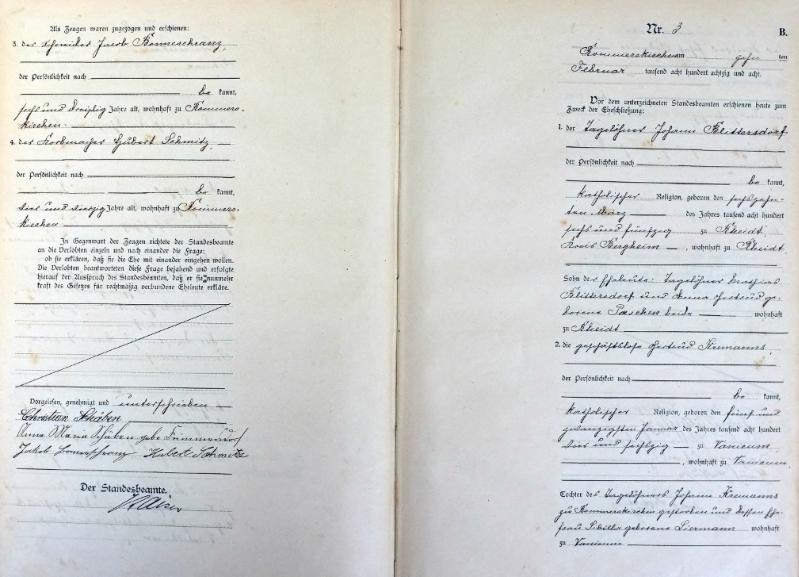 Als Zeugen waren zugezogen und erschienen:
3. der Schneider Jacob
der Persönlichkeit nach
be kannt,
sechs und dreißig Jahre alt, wohnhaft zu Rommers-
kirchen
4. der Korbmacher Hubert Schmitz
der Persönlichkeit nach
be kannt,
vier und vierzig Jahre alt, wohnhaft zu Rommers-
kirchen
In Gegenwart der Zeugen richtete der Standesbeamte
an die Verlobten einzeln und nach einander die Frage:
ob sie erklären, daß sie die Ehe mit einander eingehen wollen.
Die Verlobten beantworteten diese Frage bejahend und erfolgte
hierauf der Ausspruch des Standesbeamten, daß er sie nunmehr
kraft des Gesetzes für rechtmäßig verbundene Eheleute erkläre.
Vorgelesen, genehmigt und unterschrieben
Christian Schäben
Anna Maria Schäben geb.
Jakob Hubert Schmitz
Der Standesbeamte.
Nr. 3
B.
Rommerskirchen zehn ten
Februar tausend acht hundert achtzig und acht.
Vor dem unterzeichneten Standesbeamten erschienen heute zum
Zweck der Eheschließung:
1. der Tagelöhner Johann Flittersdorf
der Persönlichkeit nach
be kannt,
katholischer Religion, geboren den sechszehn-
ten März des Jahres tausend acht hundert
sechs und fünfzig zu Rheidt
Kreis Bergheim, wohnhaft zu Rheidt
Sohn der Eheleute: Tagelöhner Mathias
Flittersdorf und Anna Gertrud ge-
borene Paeschen beide wohnhaft
zu Rheidt
2. die geschäftslose Gertrud Kremanns
der Persönlichkeit nach
be kannt,
katholischer Religion, geboren den fünf und
zwanzigsten Januar des Jahres tausend acht hundert
vier und sechszig zu Vanicum
, wohnhaft zu Vanicum
Tochter des Tagelöhners Johann Kremanns
zu Rommerskirchen gestorben und dessen Ehe-
frau Sibilla geborene Liermann wohnhaft
zu Vanicum